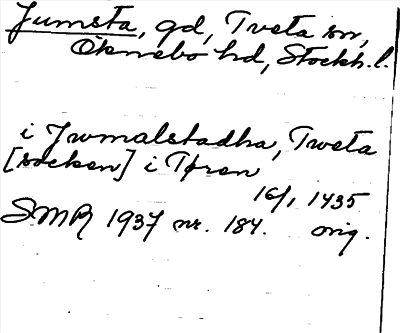 Jumsta, gd, Tveta sn,
Öknebo hd, Stockh. l.
i Jwmalstadha, Tweta
[socken] i Tøren
16/1 1435
SMR 1937 nr. 184. orig.